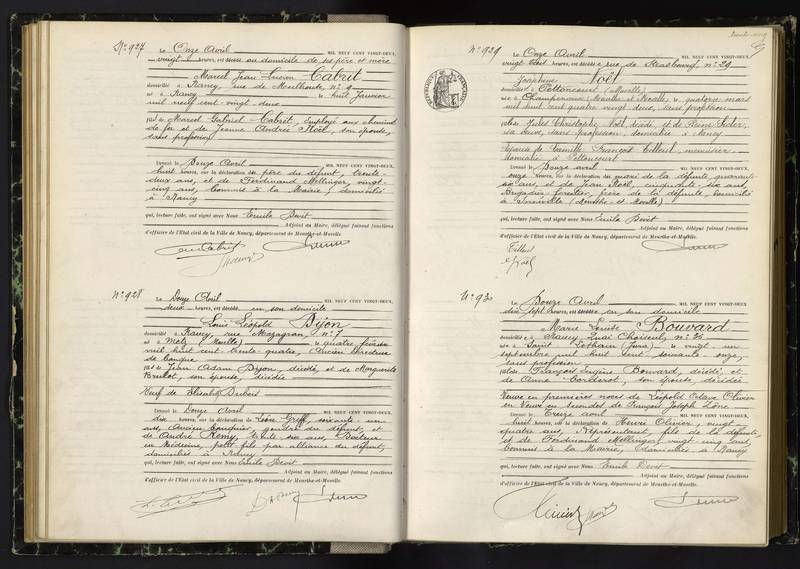 N° 927
Le Onze Avril MIL NEUF CENT VINGT-DEUX,
vingt heures, est au domicile de ses père et mère
Marcel Jean Lucien Cabret
domicilié à Nancy, rue de n° 9
né à Nancy le huit Janvier
mil neuf cent vingt deux
fils de Marcel Gabriel Cabret, employé aux chemins
de fer et de Jeanne Andrée Noël, son épouse,
sans profession
Dressé le Douze Avril MIL NEUF CENT VINGT-DEUX,
huit heures, sur la déclaration du père du défunt, trente
deux ans, et de Ferdinand Mellinger, vingt-
cinq ans, Commis à la Mairie, domiciliés
à Nancy
qui, lecture faite, ont signé avec Nous Emile
Adjoint au Maire, délégué faisant fonctions
d'officier de l'Etat civil de la Ville de Nancy, département de Meurthe-et-Moselle.
N° 928
Le Douze Avril MIL NEUF CENT VINGT-DEUX,
deux heures, est décédé en son domicile
Louis Léopold Dijon
domicilié à Nancy, rue Mazagran, n° 7
né à Metz (Moselle) le quatre février
mil huit cent trente-quatre, Ancien Directeur
de banque
fils de Jean Adam Dijon, décédé, et de Marguerite
son épouse, décédée
Veuf de Elisabeth Dubois
Dressé le Douze Avril MIL NEUF CENT VINGT-DEUX,
dix heures, sur la déclaration de Léon soixante un
ans, Ancien banquier, gendre du défunt, et
de André Remy, trente six ans, Docteur
en Médecine, petit fils par alliance du défunt,
domiciliés à Nancy
qui, lecture faite, ont signé avec Nous Emile
Adjoint au Maire, délégué faisant fonctions
d'officier de l'Etat civil de la Ville de Nancy, département de Meurthe-et-Moselle.
N° 929
Le Onze Avril MIL NEUF CENT VINGT-DEUX,
vingt heures, est rue de Strasbourg, n° 29
Joséphine Noël
domiciliée à (Moselle)
née à Champenoux (Meurthe et Moselle), le quatorze mars
mil huit cent quatre vingt deux, sans profession
fille de Jules Christophe Noël, décédé, et de
sa veuve, sans profession, domiciliée à Nancy
Epouse de Camille François Tilleul, menuisier
domicilié à
Dressé le Douze avril MIL NEUF CENT VINGT-DEUX,
onze heures, sur la déclaration du mari de la défunte, quarante
six ans, et de Jean Noël, cinquante six ans,
Brigadier forestier, frère de la défunte, domicilié
à (Meurthe et Moselle)
qui, lecture faite, ont signé avec Nous Emile
Adjoint au Maire, délégué faisant fonctions
d'officier de l'Etat civil de la Ville de Nancy, département de Meurthe-et-Moselle.
Tilleul
Noël
N° 930
Le Douze Avril MIL NEUF CENT VINGT-DEUX,
dix sept heures, est en son domicile
Marie Louise Bouvard
domiciliée à Nancy, Quai Choiseul, n° 36
née à Saint Lothain (Jura), le vingt un
septembre mil huit cent soixante onze,
sans profession
fille de François Eugène Bouvard, décédé, et
de Anne son épouse, décédée
Veuve en premières noces de Léopold Octave Olivier
en Veuve en secondes de François Joseph
Dressé le Treize avril MIL NEUF CENT VINGT-DEUX,
huit heures, sur la déclaration de Henri Olivier, vingt-
quatre ans, Représentant, fils de la défunte,
et de Ferdinand Mellinger, vingt cinq ans,
Commis à la Mairie, domiciliés à Nancy
qui, lecture faite, ont signé avec Nous Emile
Adjoint au Maire, délégué faisant fonctions
d'officier de l'Etat civil de la Ville de Nancy, département de Meurthe-et-Moselle.